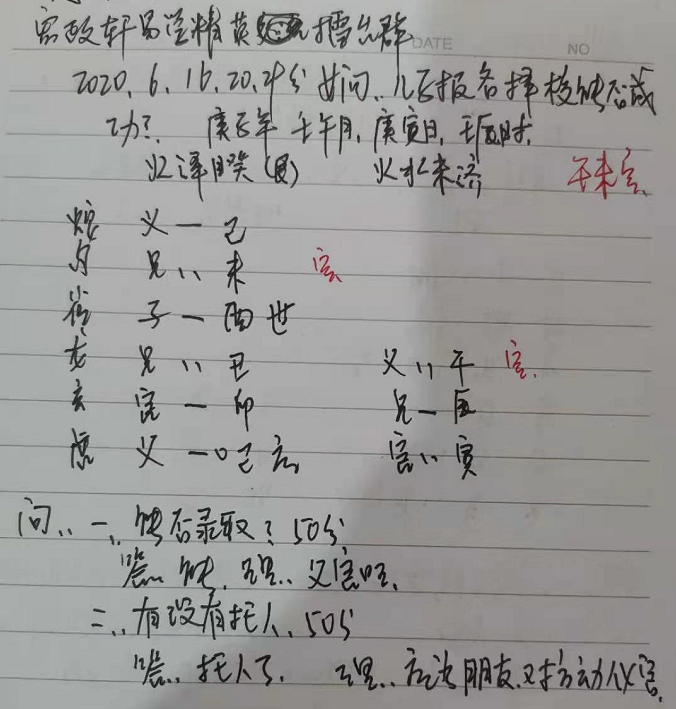 易学精英擂台群 DATE NO
2020.6.16.20.24分 女问..儿子报名择校能否成
功? 庚子年 壬午月,庚寅日,时.
火泽睽(艮) 火水未济 午未空
父一巳
勾 兄八未 空
子一酉世
龙 兄八丑 父八午 空
玄 官一卯 兄一辰
虎 父一o巳应 官八寅
问..一、能否录取?50分
答..能.理..父官旺.
二..有没有托人.50分
答..托人了. 理..应为朋友.又对方动化官.